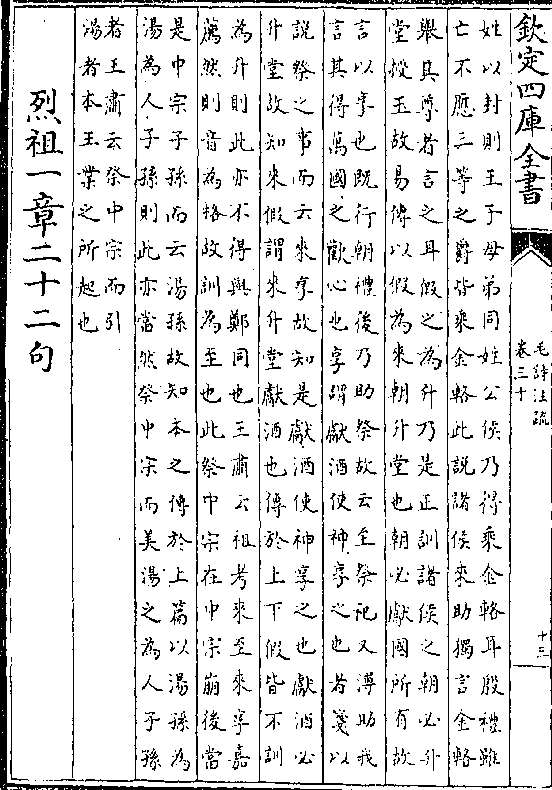 欽定四庫全書
毛詩注疏
卷三十
十三
姓以封則王子母弟同姓公侯乃得乘金輅耳殷禮雖
亡不應三等之爵皆乘金輅此説諸侯來助獨言金輅
舉其尊者言之耳假之為升乃是正訓諸侯之朝必升
堂授玉故易傳以假為來朝升堂也朝必獻國所有故
言以享也既行朝禮後乃助祭故云至祭祀又溥助我
言其得萬國之歡心也享謂獻酒使神享之也者箋以
説祭之事而云來享故知是獻酒使神享之也獻酒必
升堂故知來假謂來升堂獻酒也傳於上下假皆不訓
為升則此亦不得與鄭同也王肅云祖考來至來享嘉
薦然則音為格故訓為至也此祭中宗在中宗崩後當
是中宗子孫而云湯孫故知本之傳於上篇以湯孫為
湯為人子孫則此亦當然祭中宗而美湯之為人子孫
者王肅云祭中宗而引
湯者本王業之所起也
烈祖一章二十二句